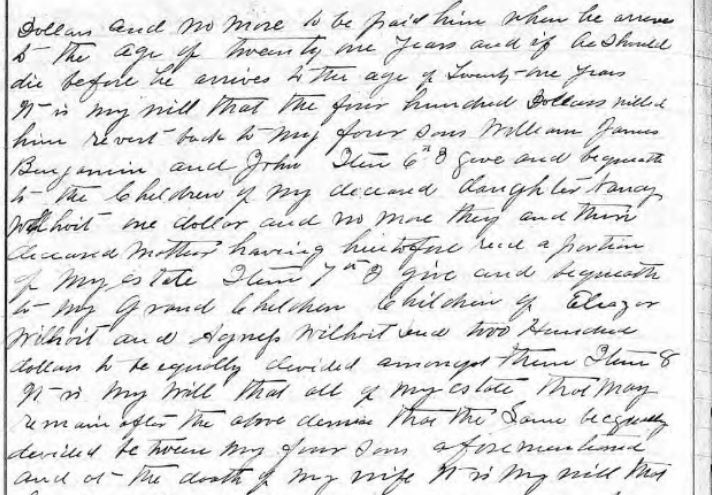 Dollars and no more to be paid him when he arrive
to the age of twenty one years and if he should
die before he arrives to the age of Twenty-one years
It is my will that the four hundred Dollars willed
him revert back to my four sons William James
Benjamin and John Item 6th I give and bequeath
to the Children of my deceased daughter Nancy
Wilhoit one dollar and no more they and their
deceased Mother having heretofore recd a portion
of my estate Item 7th I give and bequeath
to my Grand Children Children of Eleazor
Wilhoit and Agness Wilhoit and two Hundred
dollars to be equally devided amongst them Item 8
It is my will that all of my estate that may
remain after the above demise that the Same be equally
devided between my four sons aforementioned
and at the death of my wife It is my will that